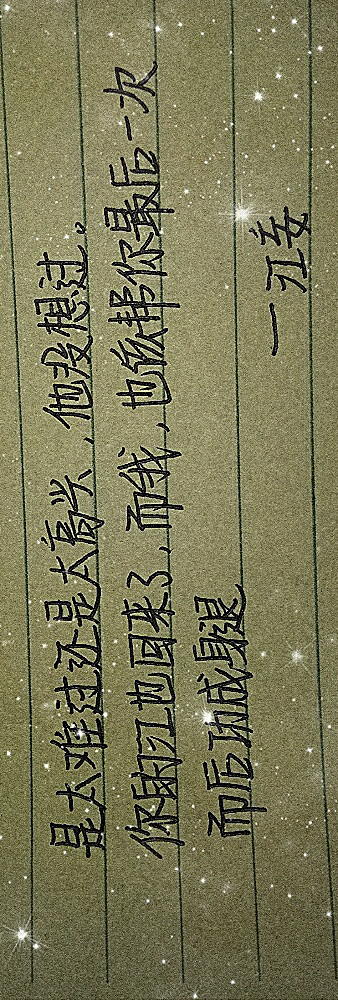 是太难过还是太高兴，他没想过。
你的江也回来了，而我，也该帮你最后一次
而后功成身退
一江妄